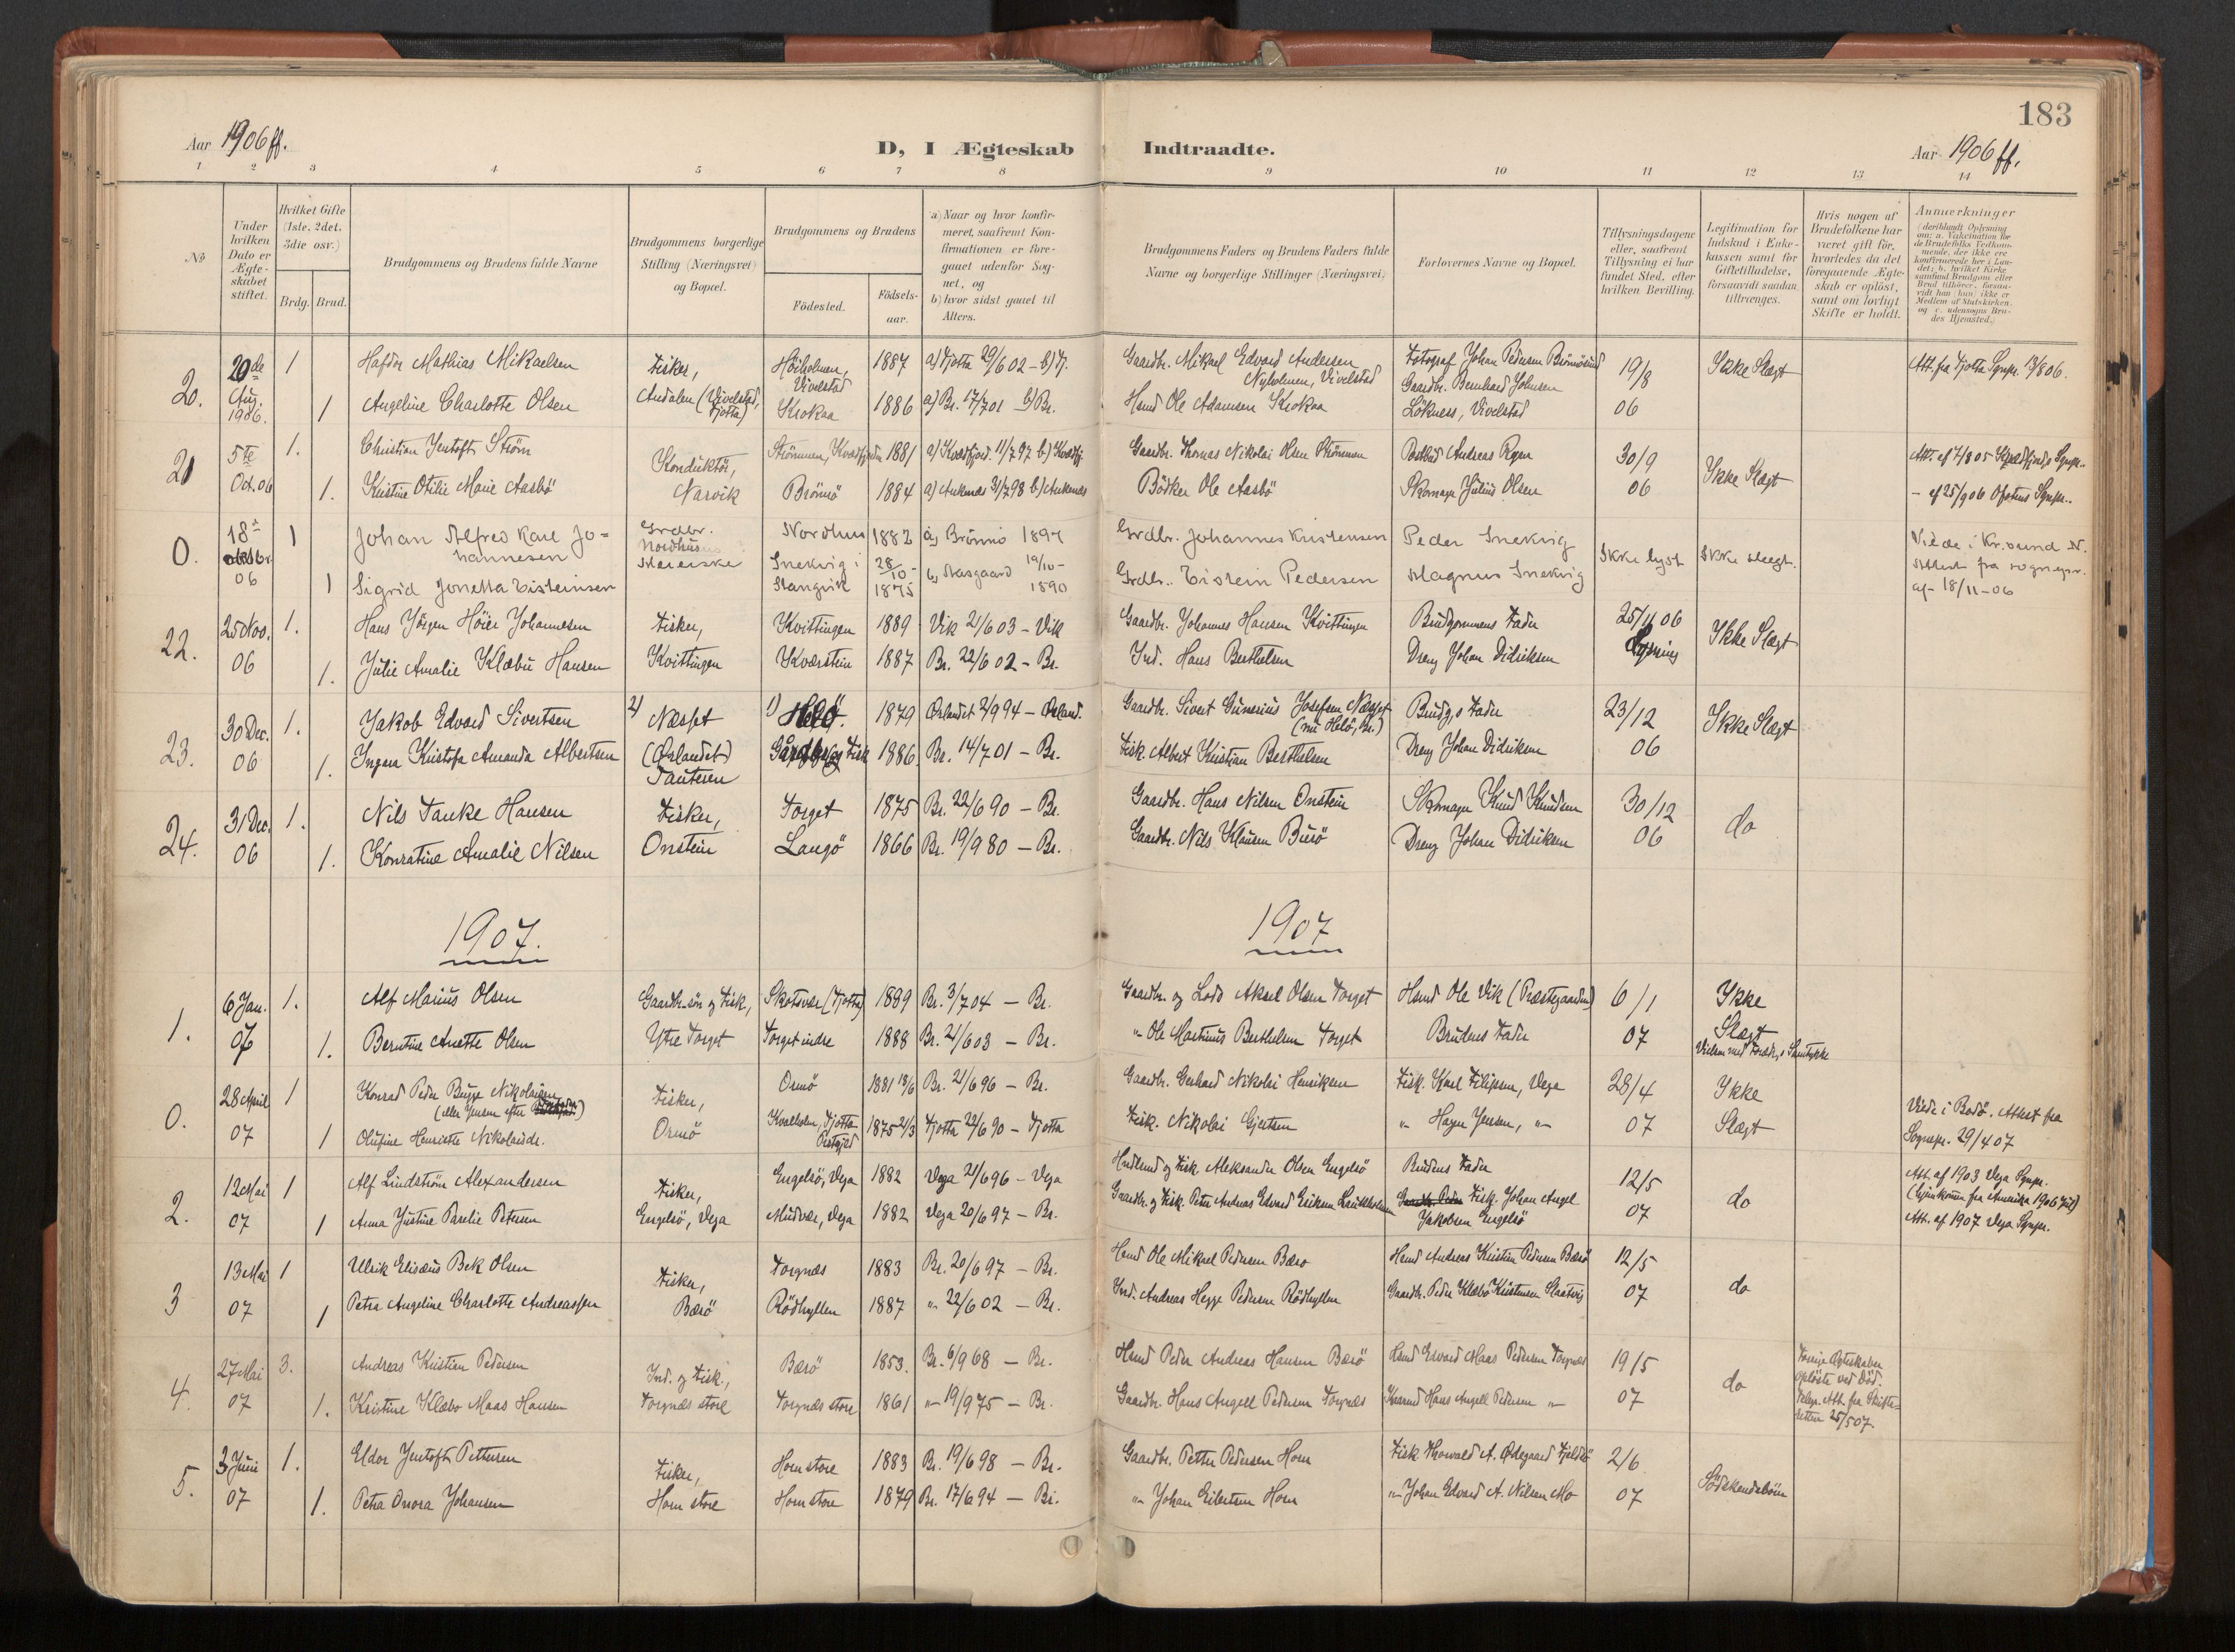 183
Aar 1906 ff.
D, I Ægteskab Indtraadte.
Aar 1906 ff.
1 2 3 4 5 6 7 8 9 10 11 12 13 14
No
Under hvilken Dato er Ægteskabet stiftet.
Hvilket Gifte (1ste, 2det, 3die osv.)
Brdg. Brud.
Brudgommens og Brudens fulde Navne
Brudgommens borgerlige Stilling (Næringsvei) og Bopæl.
Brudgommens og Brudens
Födested.
Födselsaar.
a) Naar og hvor konfirmeret, saafremt Konfirmationen er foregaaet udenfor Sognet, og
b) hvor sidst gaaet til Alters.
Brudgommens Faders og Brudens Faders fulde Navne og borgerlige Stillinger (Næringsvei)
Forlovernes Navne og Bopæl.
Tillysningsdagene eller, saafremt Tillysning ei har fundet Sted, efter hvilken Bevilling.
Legitimation for Indskud i Enkekassen samt for Giftetilladelse, forsaavidt saadan tiltrænges.
Hvis nogen af Brudefolkene har været gift för, hvorledes da det foregaaende Ægteskab er oplöst, samt om lovligt Skifte er holdt.
Anmerkninger (deriblandt Oplysning om: a. Vakcination for de Brudefolks Vedkommende, der ikke ere konfirmerede her i Landet; b. hvilket Kirkesamfund Brudgom eller Brud tilhörer, forsaavidt han (hun) ikke er Medlem af Statskirken, og c. udensogns Brudes Hjemsted.)
20. 20de Aug. 1906. 1 Hafdor Mathias Mikaelsen Fisker, Høiholmen, Vivelstad 1887 a) Tjotta 29/6 02 - b) Tj. Gaardbr. Mikael Edvard Andersen Nyholmen, Vivelstad Fotograf Johan Pedersen Brönösund 19/8 Ikke Slægt Att. fra Tjotta Sgnpr. 13/8 06.
1 Angeline Charlotte Olsen Andalen (Vivelstad, Tjotta) Krokaa 1886 a) Br. 17/7 01 b) Br. Hsmd Ole Adamsen Krokaa Gaardbr. Bernhard Johnsen Lökness, Vivelstad 06
21 5te Oct. 06 1. Christian Jentoft Ström Konduktör, Strömmen, Kvædfjorden 1881 a) Kvædfjord. 11/7 97 b) Kvædfj. Gaardbr. Thomas Nikolai Olsen Strömmen Postbud Andreas 30/9 Ikke Slægt Att. af 7/8 05 Kvædfjord,s Sgnpr..
1. Kristine Otilie Marie Aasbö Narvik Brönnö 1884 a) Ankenes 3/7 98 b) Ankenes Bödker Ole Aasbö Skomager Julius Olsen 06 - af 25/9 06 Ofotens Sgnpr..
0. 18de oktbr. 06 1 Johan Alfred Karl Johannesen Grdbr. Nordhus Nordhus 1882 a, Brönnö 1897 Grdbr. Johannes Kristensen Peder Snekvig Ikke lyst Ikke slegt. Viede i Kr.sund N. Attest fra sognepr. af 18/11-06
1 Sigrid Jonetta Eisteinsen Meierske Snekvig i Stangvik 28/10- 1875 b, Aasgaard 19/10- 1890 Grdbr. Eistein Pedersen Magnus Snekvig
22. 25 Nov. 06 1. Hans Jörgen Höier Johannesen Fisker, Kvittingen 1889 Vik 21/6 03 - Vik Gaardbr. Johannes Hansen Kvittingen Brudgommens Fader 25/11 06 Lysning Ikke Slægt
1. Julie Amalie Klæbu Hansen Kvittingen Kværstein 1887 Br. 22/6 02 - Br. Ind. Hans Berthelsen Dreng Johan Didriksen
23. 30 Dec. 06 1. Jakob Edvard Sivertsen 2) Næsset 1) Helö. 1879 Ørlandet 2/9 94 - Ørland. Gaardbr. Sivert Gunerius Josefsen Næsset (nu Helö, Br.) Brudg,s Fader 23/12 Ikke Slægt
1. Ingara Kristofa Amanda Albertsen (Ørlandet) 1886. Br. 14/7 01 - Br. Fisk. Albert Kristian Berthelsen Dreng Johan Didriksen 06
24. 31 Dec. 06 1. Nils Tanke Hansen Fisker, Torget 1875 Br. 22/6 90 - Br. Gaardbr. Hans Nilsen Onstein Skomager Knud Knudsen 30/12 do
1. Konratine Amalie Nilsen Onstein Langö 1866 Br. 19/9 80 - Br. Gaardbr. Nils Klausen Burö Dreng Johan Didriksen 06
1907. 1907
1. 6 Jan. 07 1. Alf Marius Olsen Gaardbr.sön og Fisk., Skotsvær (Tjotta) 1889 Br. 3/7 04 - Br. Gaardbr. og Lods Aksel Olsen Torget Hsmd Ole Vik (Præstegaarden) 6/1 Ikke Slægt
1. Berntine Anette Olsen Ytre Torget Torget indre 1888 Br. 21/6 03 - Br. "- Ole Martinus Berthelsen Torget Brudens Fader 07 Vielsen med Forældr,s Samtykke
0. 28 April 07 1 Konrad Peder Bugge Nikolaisen (eller Jensen efter) Fisker, Ormö 1881 18/6 Br. 21/6 96 - Br. Gaardbr. Gerhard Nikolai Henriksen Fisk. Karl Filipsen, Vega 28/4 Ikke Slægt Viede i Bodö. Attest fra Sognepr. 29/4 07
1 Olufine Henriette Nikolaisdr. Ormö Kvalholm, Tjötta Prstgjld 1875 21/3 Tjotta 22/6 90 - Tjotta Fisk. Nikolai Gjertsen "- Hagen Jensen, "- 07
2. 12 Mai 07 1 Alf Lindström Alexandersen Fisker, Engelsö, Vega 1882 Vega 21/6 96 - Vega Hsmd og Fisk. Aleksander Olsen Engelsö Brudens Fader 12/5 do Att. af 1903 Vega Sgnpr. (hjemkomm fra Amerika 1906 Jul)
1 Anna Justine Parelie Petersen Engelsö, Vega Mudvær, Vega 1882 Vega 20/6 97 - Br. Gaardbr. og Fisk. Peter Andreas Edvard Eriksen Fisk. Johan Angel Jakobsen Engelsö 07 Att. af 1907 Vega Sgnpr.
3 13 Mai 07 1 Ulrik Elisæus Bek Olsen Fisker, Torgnæs 1883 Br. 20/6 97 - Br. Hsmd Ole Mikael Pedersen Bærö Hsmd Andreas Kristian Pedersen Bærö 12/5 do
1 Petra Angeline Charlotte Andreassen Bærö Rödhyllen 1887 "- 22/6 02 - Br. Ind. Andreas Hegge Pedersen Rödhyllen Gaardbr. Peder Klæbö Kristensen 07
4. 27 Mai 07 3. Andreas Kristian Pedersen Ind. og Fisk., Bærö 1853. Br. 6/9 68 - Br. Hsmd Peder Andreas Hansen Bærö Hsmd Edvard Maas Pedersen Torgnæs 19/5 do Forrige Ægteskaber oplöste ved Död. Telegr. Att. fra Skifteretten 25/5 07.
1. Kristine Klæbo Maas Hansen Torgnæs store Torgnæs store 1861 "- 19/9 75 - Br. Gaardbr. Hans Angell Pedersen Torgnæs Hans Angell Pedersen "- 07
5. 3 Juni 07 1. Eldor Jentoft Pettersen Fisker, Horn store 1883 Br. 19/6 98 - Br. Gaardbr. Petter Pedersen Horn Fisk Thorvald A. Ødegaard 2/6 Södskendebörn
1. Petra Onora Johansen Horn store Horn store 1879 Br. 17/6 94 - Br. "- Johan Eilertsen Horn "- Johan Edvard A. Nilsen Mo 07